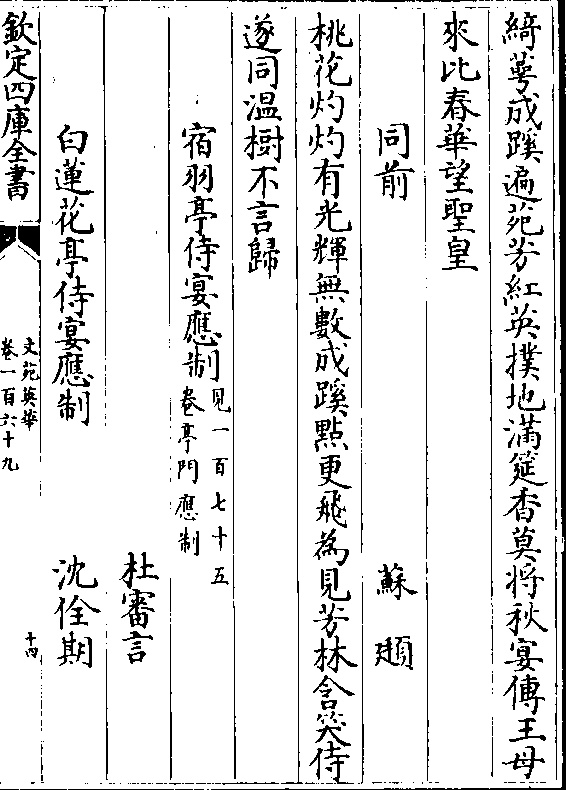 綺萼成蹊遍苑芳紅英撲地滿筵香莫將秋宴傳王母
來比春華望聖皇
同前　蘇頲
桃花灼灼有光輝無數成蹊點更飛為見芳林含笑侍
遂同溫樹不言歸
宿羽亭侍宴應制見一百七十五
卷亭門應制
杜審言
白蓮花亭侍宴應制　沈佺期
欽定四庫全書
文苑英華
卷一百六十九
十四